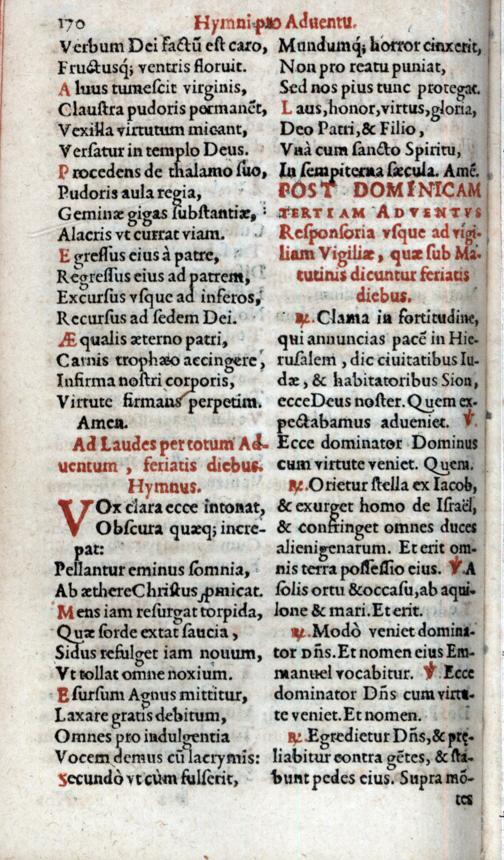 170
Hymni pro Aduentu.
Verbum Dei factũ est caro,
Fructusq; ventris floruit.
Aluus tumescit virginis,
Claustra pudoris permanẽt,
Vexilla virtutum micant,
Versatur in templo Deus.
Procedens de thalamo suo,
Pudoris aula regia,
Geminæ gigas substantiæ,
Alacris vt currat viam.
Egressus eius à patre,
Regressus eius ad patrem,
Excursus vsque ad inferos,
Recursus ad sedem Dei.
Æqualis æterno patri,
Carnis trophæo accingere,
Infirma nostri corporis,
Virtute firmans perpetim.
Amen.
Ad Laudes per totum Ad-
uentum, feriatis diebus.
Hymnus.
VOx clara ecce intonat,
Obscura quæq; incre-
pat:
Pellantur eminus somnia,
Ab æthere Christus ꝓmicat.
Mens iam resurgat torpida,
Quæ sorde extat saucia,
Sidus refulget iam nouum,
Vt tollat omne noxium.
E sursum Agnus mittitur,
Laxare gratis debitum,
Omnes pro indulgentia
Vocem demus cũ lacrymis:
Secundò vt cùm fulserit,
Mundumq; horror cinxerit,
Non pro reatu puniat,
Sed nos pius tunc protegat.
Laus, honor, virtus, gloria,
Deo Patri, & Filio,
Vnà cum sancto Spiritu,
In sempiterna sæcula. Amẽ.
POST DOMINICAM
TERTIAM ADVENTVS
Responsoria vsque ad vigi-
liam Vigiliæ, quæ sub Ma-
tutinis dicuntur feriatis
diebus.
℟. Clama in fortitudine,
qui annuncias pacẽ in Hie-
rusalem, dic ciuitatibus Iu-
dæ, & habitatoribus Sion,
ecce Deus noster. Quem ex-
pectabamus adueniet. ℣.
Ecce dominator Dominus
cum virtute veniet. Quem.
℟. Orietur stella ex Iacob,
& exurget homo de Israël,
& confringet omnes duces
alienigenarum. Et erit om-
nis terra possessio eius. ℣. A
solis ortu & occasu, ab aqui-
lone & mari. Et erit.
℟. Modò veniet domina-
tor Dñs. Et nomen eius Em-
manuel vocabitur. ℣ Ecce
dominator Dñs cum virtu-
te veniet. Et nomen.
℟. Egredietur Dñs, & prę-
liabitur contra gẽtes, & sta-
bunt pedes eius. Supra mõ-
tes